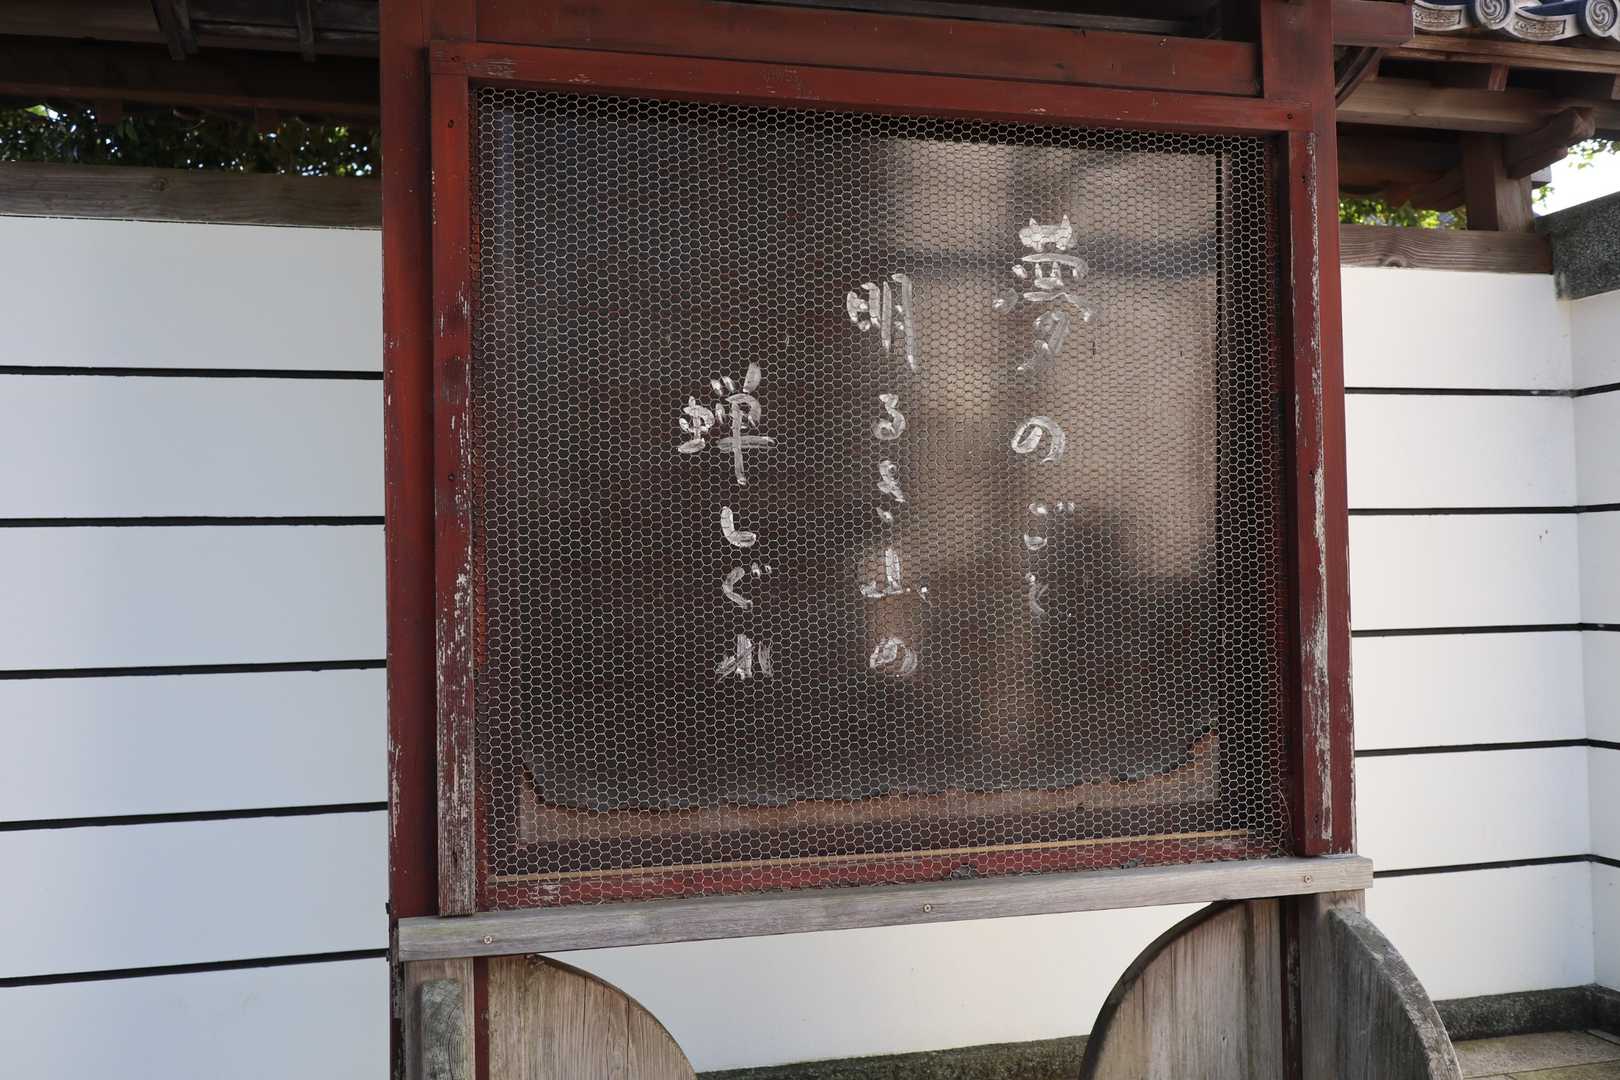 夢のごと
明るき山の
蝉しぐれ